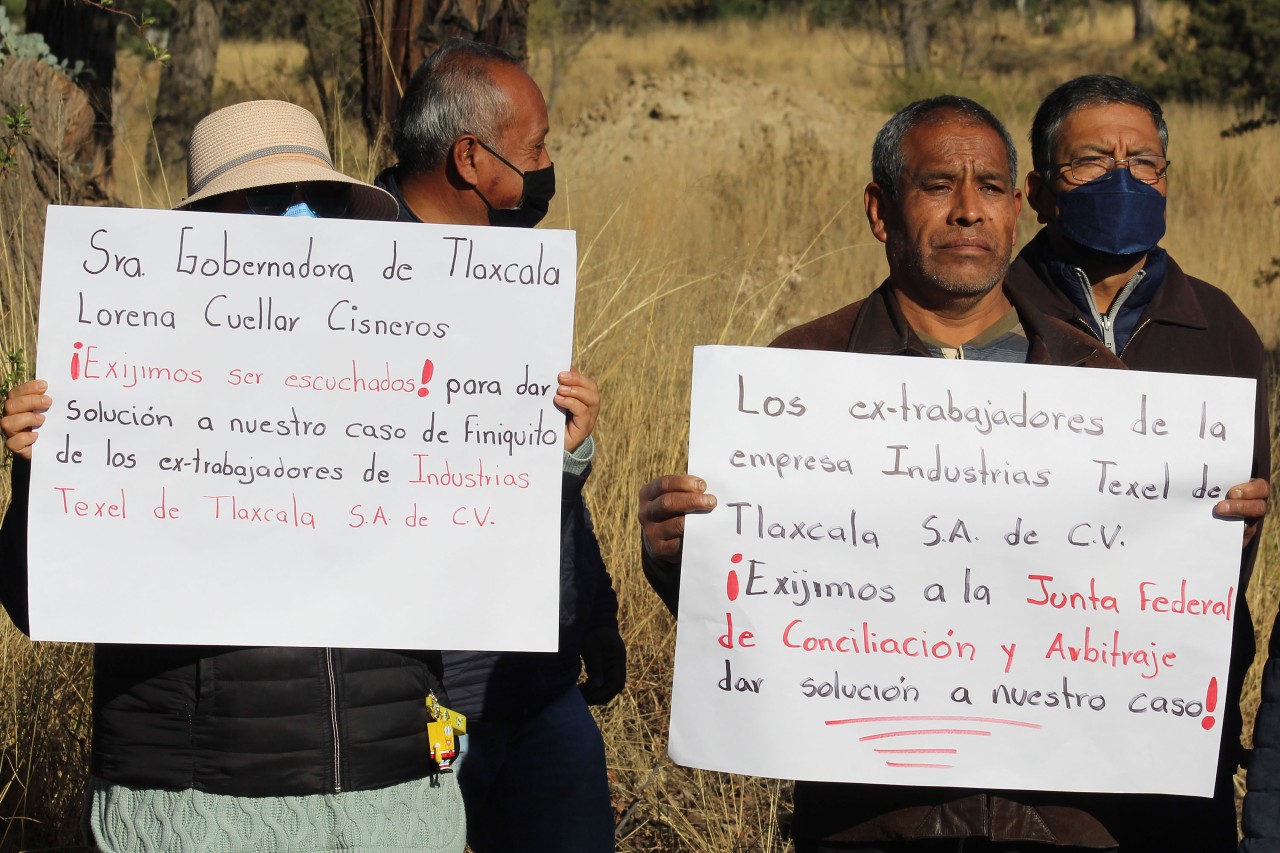 Sra. Gobernadora de Tlaxcala
Lorena Cuellar Cisneros
¡Exijimos ser escuchados! para dar
solución a nuestro caso de Finiquito
de los ex-trabajadores de Industrias
Texel de Tlaxcala S.A. de C.V.
Los ex-trabajadores de la
empresa Industrias Texel de
Tlaxcala S.A. de C.V.
¡Exijimos a la Junta Federal
de Conciliación y Arbitraje
dar solución a nuestro caso!